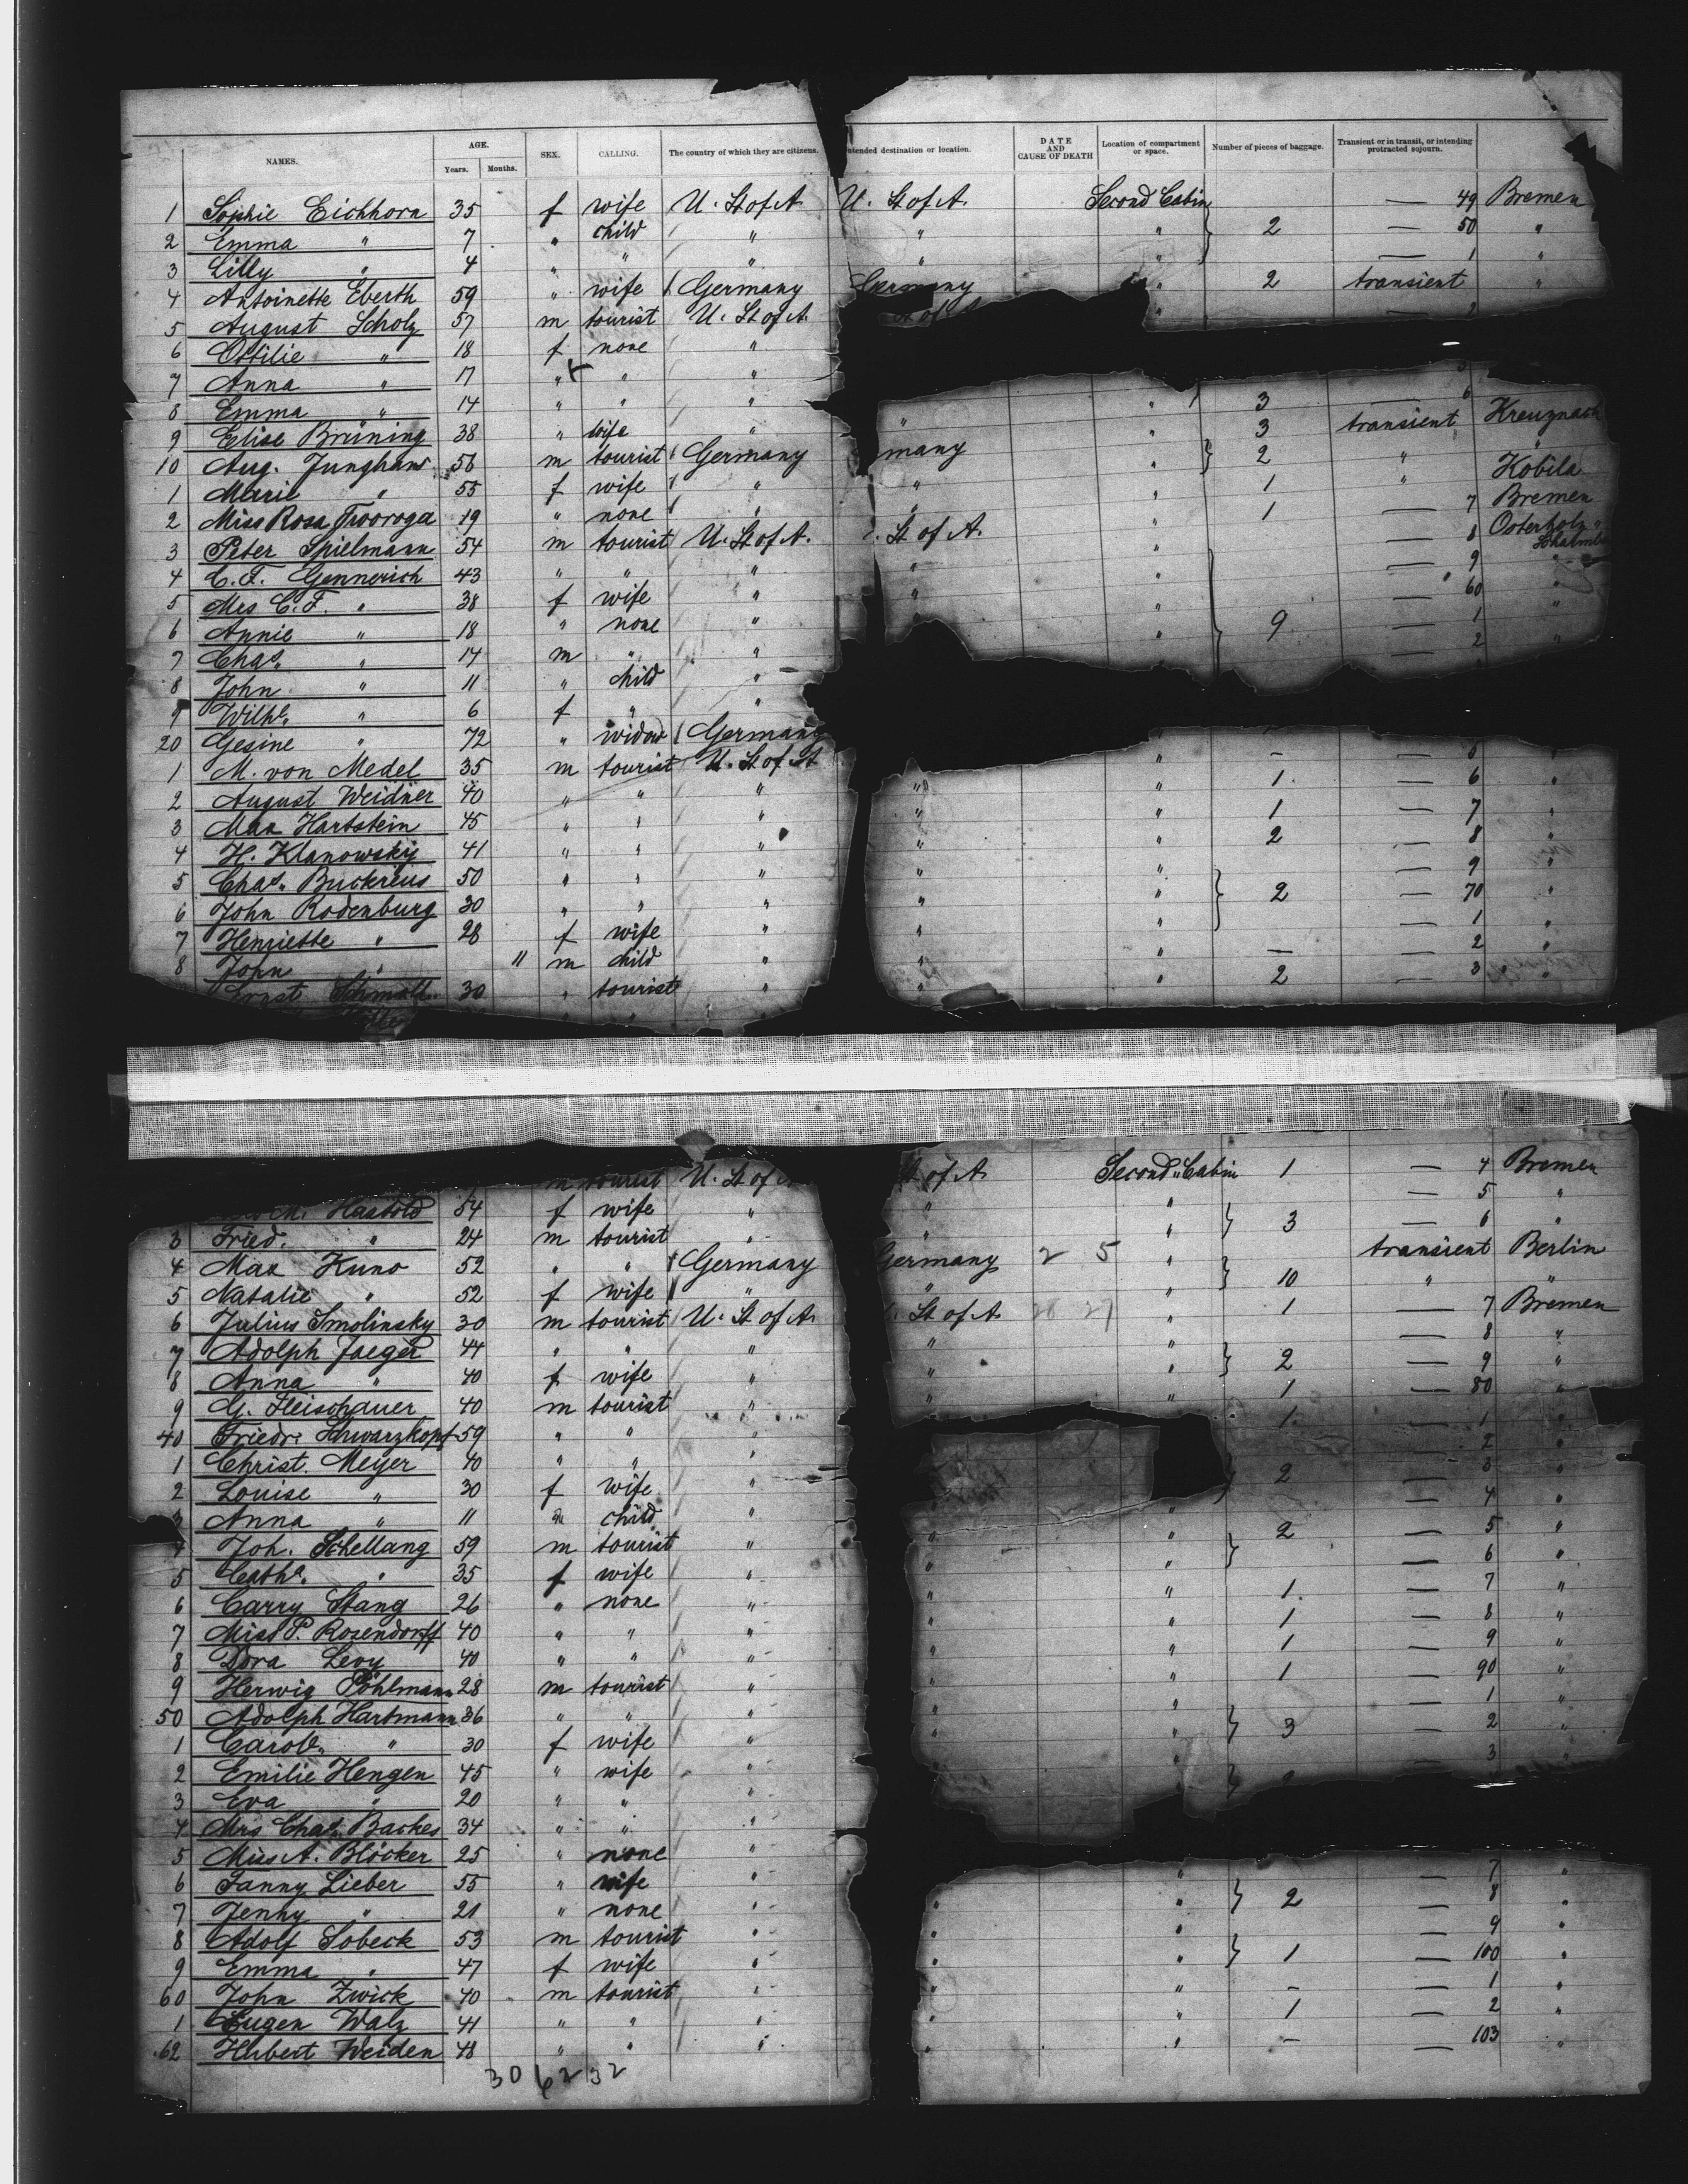 NAMES. AGE. Years. Months. SEX. CALLING. The country of which they are citizens. Intended destination or location. DATE AND CAUSE OF DEATH Location of compartment or space. Number of pieces of baggage. Transient or in transit, or intending protracted sojourn.
1 Sophie Eichhorn 35 f wife U. St of A. U. St of A. Second Cabin — 49 Bremen
2 Emma " 7 " child " " " 2 — 50 "
3 Lilly " 4 " " " " " — 1 "
4 Antoinette Eberth 59 " wife Germany Germany " 2 transient "
5 August Scholz 57 m tourist U. St of A. St of A " — 2
6 Ottilie " 18 f none "
7 Anna " 17 " " "
8 Emma " 14 " " " " 3 — 6
9 Elise Brüning 38 " wife " " " 3 transient Kreuznach
10 Aug. Junghans 56 m tourist Germany many " 2 " "
1 Marie " 55 f wife " " " 1 " Kobila
2 Miss Rosa 19 " none " " " 1 7 Bremen
3 Peter Spielmann 54 m tourist U. St of A. St of A. " — 8 Osterholz
4 C. F. Gennerich 43 " " " " " — 9 "
5 Mrs C. F. " 38 f wife " " " — 60 "
6 Annie " 18 " none " " 9 — 1 "
7 Chas. " 14 m " " — 2 "
8 John " 11 " child "
9 Wilhe. " 6 f " "
20 Gesine " 72 " widow Germany
1 M. von Medel 35 m tourist U. St of A " — "
2 August Weidner 40 " " " " " 1 — 6 "
3 Max Hartstein 45 " " " " " 1 — 7 "
4 H. Klanowsky 41 " " " " " 2 — 8 "
5 Chas. Buckreus 50 " " " " " — 9 "
6 John Rodenburg 30 " " " " " 2 — 70 "
7 Henriette " 28 f wife " " — 1 "
8 John " 11 m child " " — — 2 "
Ernst 30 " tourist " " " 2 — 3 "
m tourist U. St of A St of A. Second Cabin 1 — 4 Bremen
M. Hastold 54 f wife " " " — 5 "
3 Fried. " 24 m tourist " " " 3 — 6 "
4 Max Kuno 52 " " Germany Germany 2 5 " transient Berlin
5 Natalie " 52 f wife " " " 10 " "
6 Julius Smolinsky 30 m tourist U. St of A. St of A. 28 29 " 1 — 7 Bremen
7 Adolph Jaeger 44 " " " " " — 8 "
8 Anna " 40 f wife " " " 2 — 9 "
9 G. Fleischauer 40 m tourist " " " 1 — 80 "
40 Friedr. Schwarzkopf 59 " " " 1 — 1 "
1 Christ. Meyer 40 " " " — 2 "
2 Louise " 30 f wife " 2 — 3 "
3 Anna " 11 " child " " — 4 "
4 Joh. Schellang 59 m tourist " " " 2 — 5 "
5 Catha. " 35 f wife " " " — 6 "
6 Carry Stang 26 " none " " " 1 — 7 "
7 Miss P. Rosendorff 40 " " " " " 1 — 8 "
8 Dora Levy 40 " " " " " 1 — 9 "
9 Herwig Pöhlmann 28 m tourist " " " 1 — 90 "
50 Adolph Hartmann 36 " " " " " — 1 "
1 Carole. " 30 f wife " " " 3 — 2 "
2 Emilie Hengen 45 " wife " " — 3 "
3 Eva " 20 " " "
4 Mrs Chas. Backes 34 " " "
5 Miss A. Blöcker 25 " none "
6 Fanny Lieber 55 " wife " " — 7 "
7 Jenny " 21 " none " " " 2 — 8 "
8 Adolf Sobeck 53 m tourist " " " — 9 "
9 Emma " 47 f wife " " " 1 — 100 "
60 John Zwick 40 m tourist " " " — — 1 "
1 Eugen Walz 41 " " " " " 1 — 2 "
62 Hubert Weiden 48 " " " " " — — 103 "
30 62 32